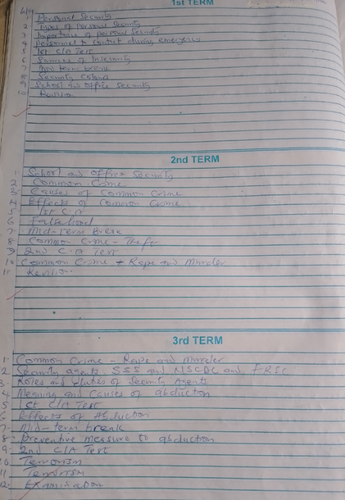 1st TERM
1 Personal Security
2 Types of Personal Security
3 Importance of personal Security
4 Personnel to contact during emergencies
5 1st C/A Test
6 Sources of Insecurity
7 Mid term break
8 Security
9 School and office Security
10 Revision
2nd TERM
1 School and office Security
2 Common Crime
3 Causes of Common Crime
4 Effects of Common Crime
5 1st C A
6 Falsehood
7 Mid-term Break
8 Common Crime - Theft
9 2nd C-A Test
10 Common Crime + Rape and Murder
11 Revision
3rd TERM
1 Common Crime - Rape and Murder
2 Security agents SSS and NSCDC and FRSC
3 Roles and duties of Security Agents
4 Meaning and Causes of abduction
5 1st C/A Test
6 Effects of Abduction
7 Mid-term break
8 Preventive Measure to abduction
9 2nd C/A Test
10 Terrorism
11 Terrorism
12 Examination